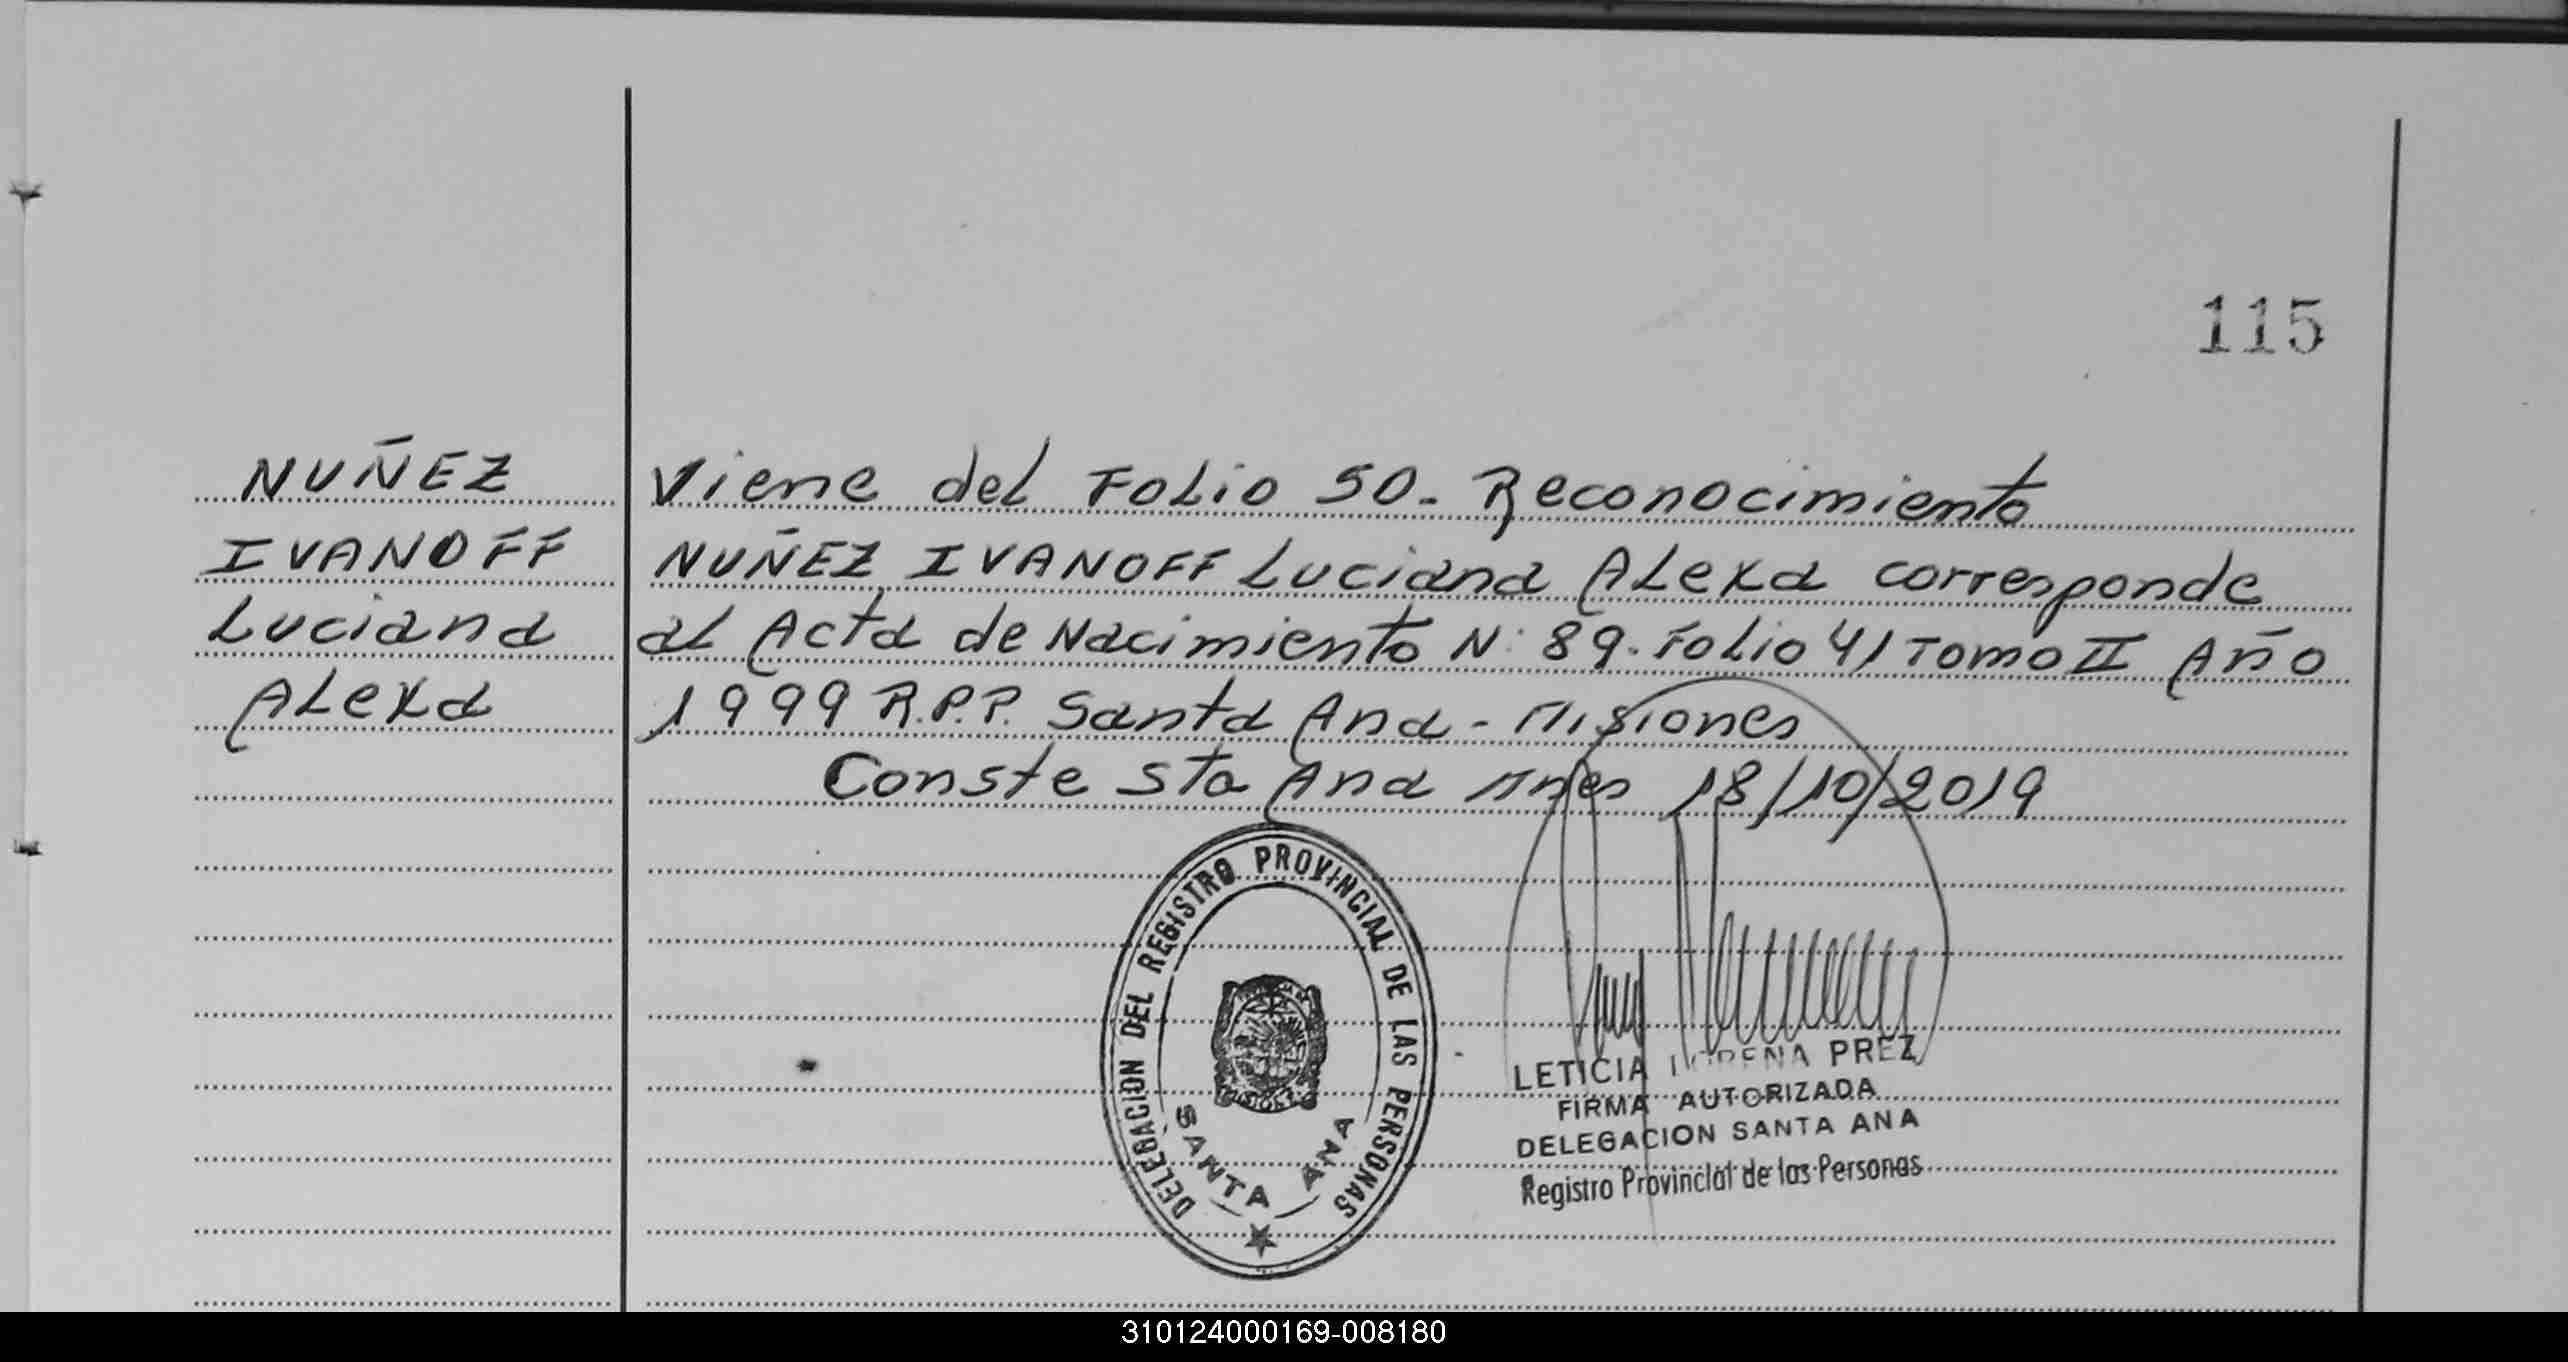 115
NUÑEZ
IVANOFF
Luciana
ALexa
Viene del FoLio 50- Reconocimiento
NUÑEZ IVANOFF Luciana ALexa corresponde
aL Acta de Nacimiento N: 89. FoLio 41 Tomo II Año
1999 R.P.P. Santa Ana - Misiones
Conste Sta Ana Mnes 18/10/2019
DELEGACION DEL REGISTRO PROVINCIAL DE LAS PERSONAS
SANTA ANA
LETICIA LORENA PREZ
FIRMA AUTORIZADA
DELEGACION SANTA ANA
Registro Provincial de las Personas
310124000169-008180